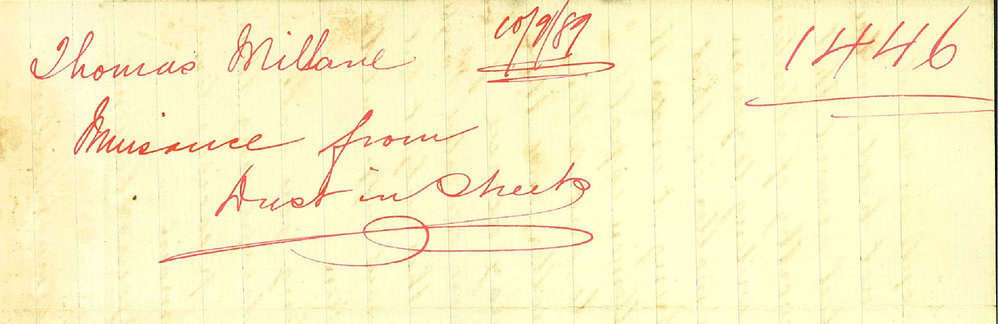 Thomas Millane 10/9/89 1446
Nuisance from
Dust in Streets